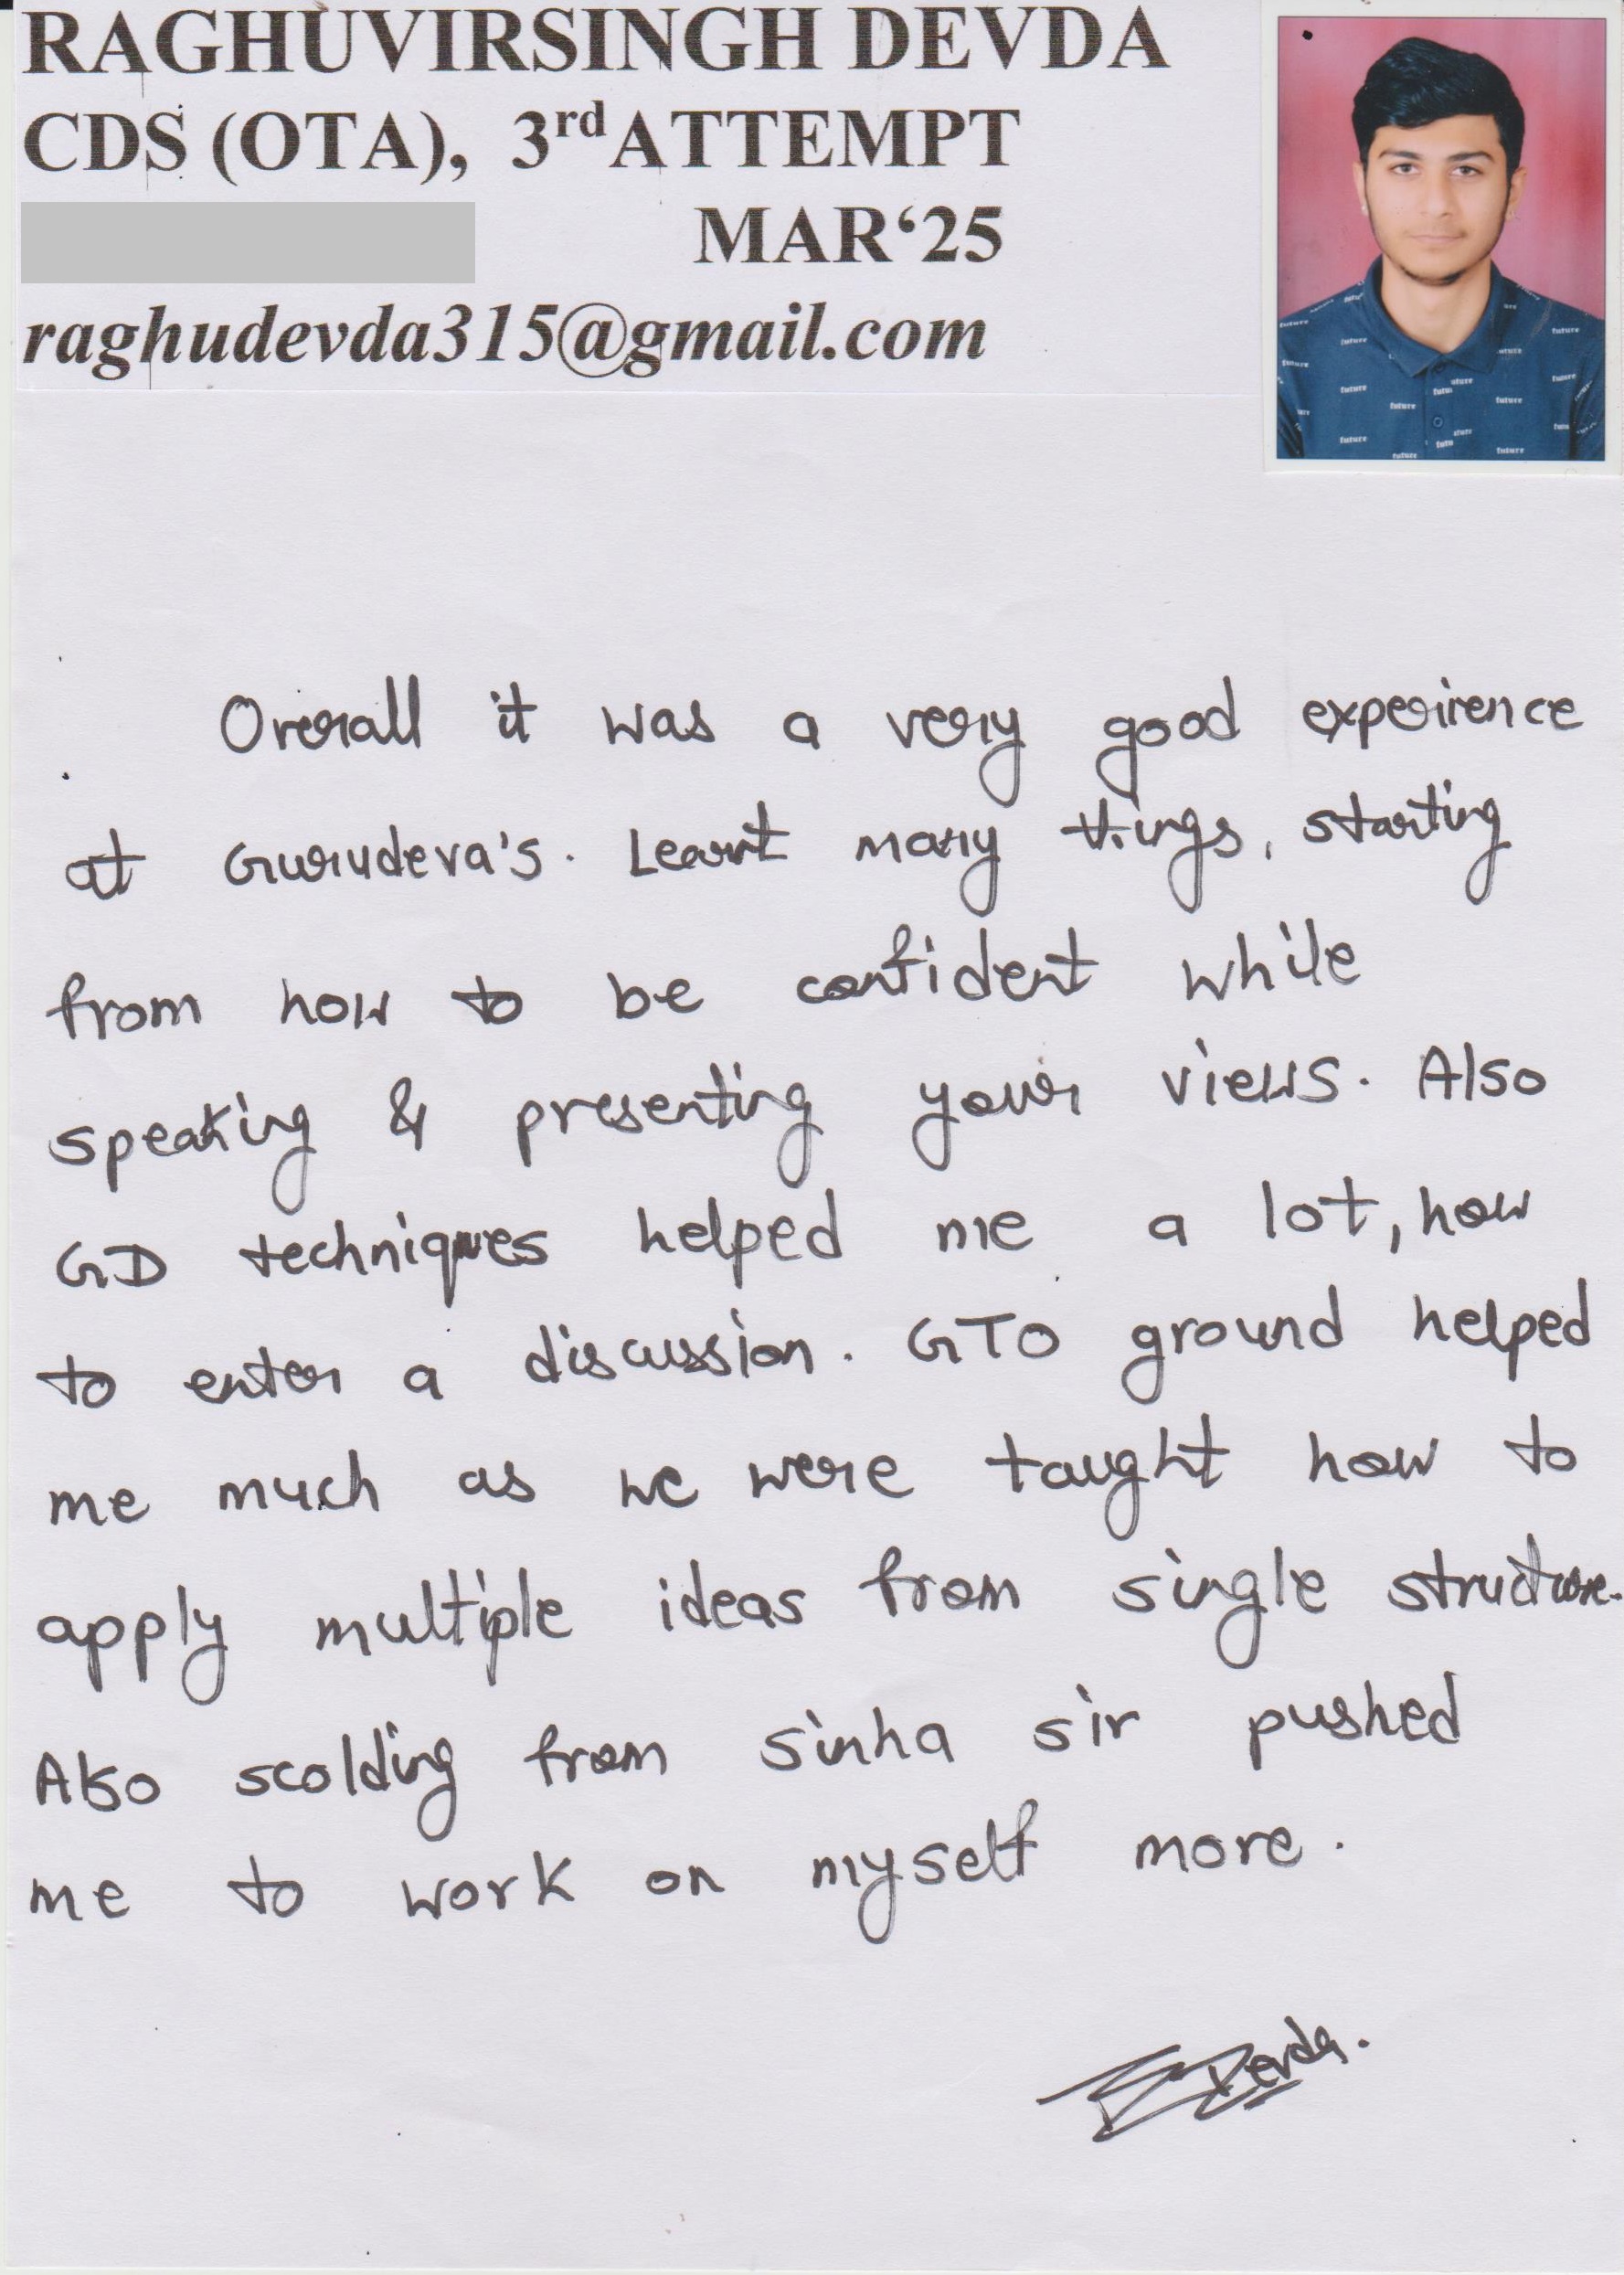 RAGHUVIRSINGH DEVDA
CDS (OTA), 3rd ATTEMPT
MAR‘25
raghudevda315@gmail.com
Overall it was a very good expeirence
at Gurudeva's. Learnt many things, starting
from how to be confident while
speaking & presenting your views. Also
GD techniques helped me a lot, how
to enter a discussion. GTO ground helped
me much as we were taught how to
apply multiple ideas from single structure.
Also scolding from Sinha sir pushed
me to work on myself more.
Devda.